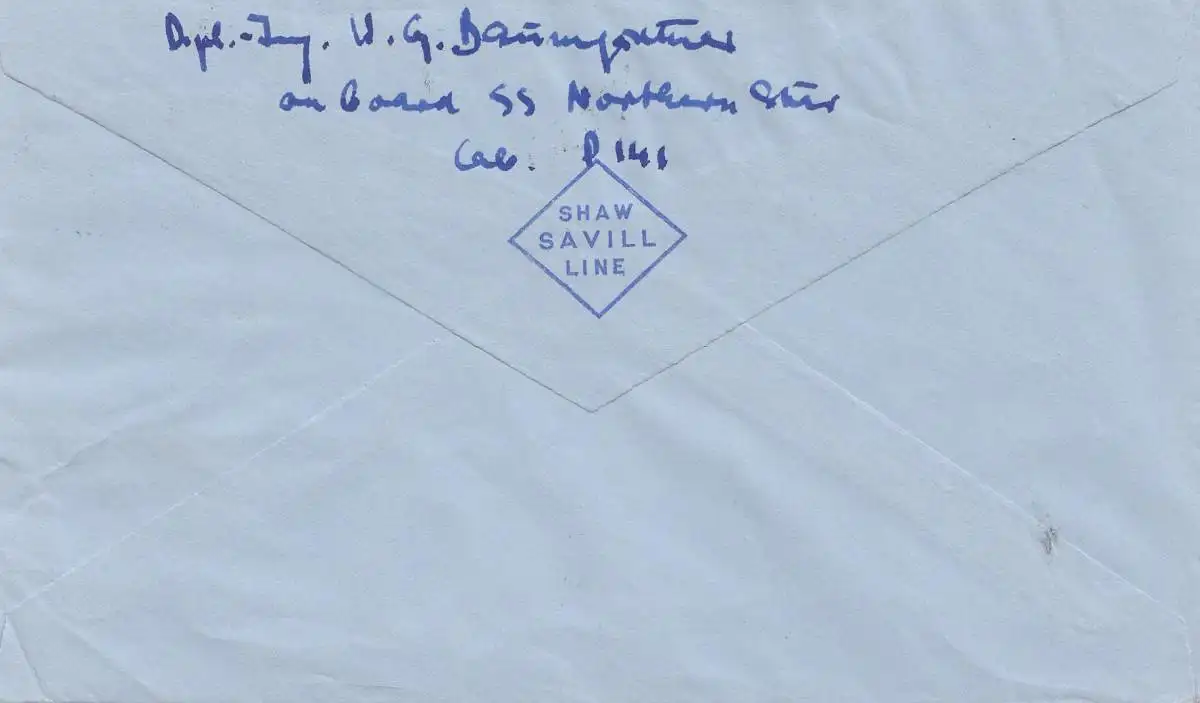 Dipl.-Ing. W. G. Baumgartner
on board SS Northern Star
Cab. D 141
SHAW
SAVILL
LINE